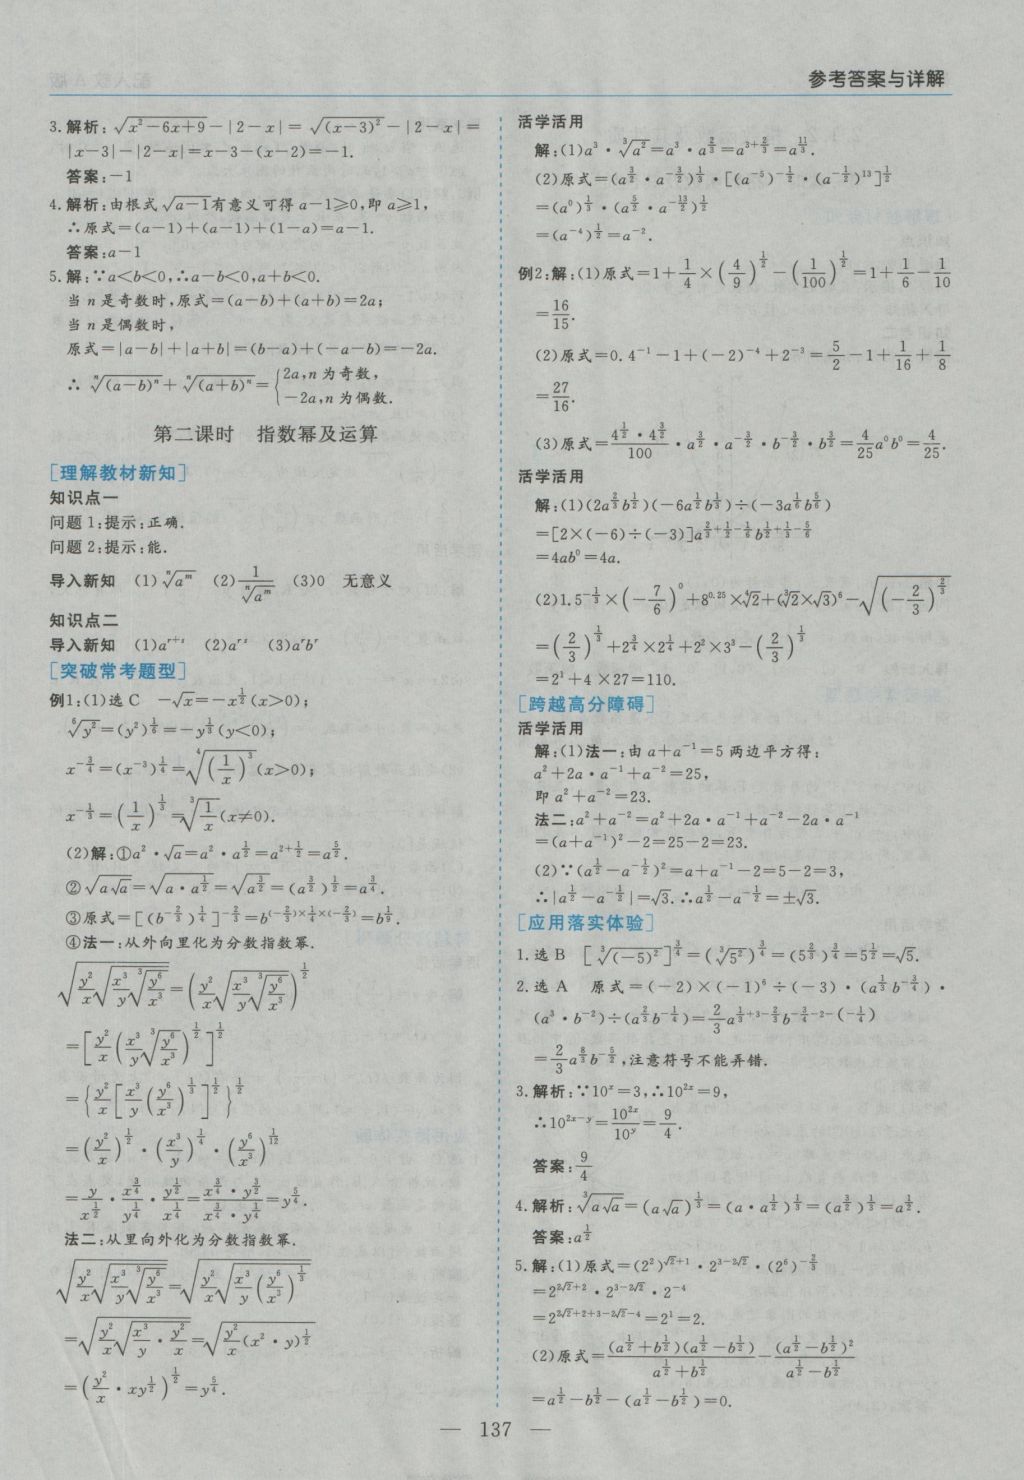 参考答案与详解
3.解析:√(x²-6x+9)-|2-x|=√((x-3)²)-|2-x|=
|x-3|-|2-x|=x-3-(x-2)=-1.
答案:-1
4.解析:由根式√(a-1)有意义可得a-1≥0,即a≥1,
∴原式=(a-1)+(a-1)+(1-a)=a-1.
答案:a-1
5.解:∵a<b<0,∴a-b<0,a+b<0.
当n是奇数时,原式=(a-b)+(a+b)=2a;
当n是偶数时,
原式=|a-b|+|a+b|=(b-a)+(-a-b)=-2a.
∴ ⁿ√((a-b)ⁿ)+ⁿ√((a+b)ⁿ)={2a,n为奇数,
-2a,n为偶数.
第二课时 指数幂及运算
[理解教材新知]
知识点一
问题1:提示:正确.
问题2:提示:能.
导入新知 (1)ⁿ√(a^m) (2)1/ⁿ√(a^m) (3)0 无意义
知识点二
导入新知 (1)a^(r+s) (2)a^(rs) (3)a^r b^r
[突破常考题型]
例1:(1)选C -√x=-x^(1/2)(x>0);
⁶√(y²)=(y²)^(1/6)=-y^(1/3)(y<0);
x^(-3/4)=(x^(-3))^(1/4)=⁴√((1/x)³)(x>0);
x^(-1/3)=(1/x)^(1/3)=³√(1/x)(x≠0).
(2)解:①a²·√a=a²·a^(1/2)=a^(2+1/2)=a^(5/2).
②√(a√a)=√(a·a^(1/2))=√(a^(3/2))=(a^(3/2))^(1/2)=a^(3/4).
③原式=[(b^(-2/3))^(1/4)]^(-2/3)=b^((-2/3)×1/4×(-2/3))=b^(1/9).
④法一:从外向里化为分数指数幂.
√(y²/x √(x³/y ³√(y⁶/x³)))=(y²/x √(x³/y ³√(y⁶/x³)))^(1/2)
=[y²/x (x³/y ³√(y⁶/x³))^(1/2)]^(1/2)
={y²/x [x³/y (y⁶/x³)^(1/3)]^(1/2)}^(1/2)
=(y²/x)^(1/2)·(x³/y)^(1/4)·(y⁶/x³)^(1/12)
=y/x^(1/2)·x^(3/4)/y^(1/4)·y^(1/2)/x^(1/4)=x^(3/4)·y^(3/2)/(x^(3/4)·y^(1/4))=y^(5/4).
法二:从里向外化为分数指数幂.
√(y²/x √(x³/y ³√(y⁶/x³)))=√(y²/x √(x³/y (y⁶/x³)^(1/3)))
=√(y²/x √(x³/y·y²/x))=√(y²/x (x²·y)^(1/2))
=(y²/x·xy^(1/2))^(1/2)=y^(5/4).
活学活用
解:(1)a³·³√(a²)=a³·a^(2/3)=a^(3+2/3)=a^(11/3).
(2)原式=(a^(3/2)·a^(-3/2))^(1/3)·[(a^(-5))^(-1/2)·(a^(-1/2))^13]^(1/2)
=(a⁰)^(1/3)·(a^(5/2)·a^(-13/2))^(1/2)
=(a^(-4))^(1/2)=a^(-2).
例2:解:(1)原式=1+1/4×(4/9)^(1/2)-(1/100)^(1/2)=1+1/6-1/10
=16/15.
(2)原式=0.4^(-1)-1+(-2)^(-4)+2^(-3)=5/2-1+1/16+1/8
=27/16.
(3)原式=4^(1/2)·4^(3/2)/100·a^(3/2)·a^(-3/2)·b^(-3/2)·b^(3/2)=4/25 a⁰b⁰=4/25.
活学活用
解:(1)(2a^(2/3)b^(1/2))(-6a^(1/2)b^(1/3))÷(-3a^(1/6)b^(5/6))
=[2×(-6)÷(-3)]a^(2/3+1/2-1/6)b^(1/2+1/3-5/6)
=4ab⁰=4a.
(2)1.5^(-1/3)×(-7/6)⁰+8^0.25×⁴√2+(³√2×√3)⁶-√((-2/3)^(2/3))
=(2/3)^(1/3)+2^(3/4)×2^(1/4)+2²×3³-(2/3)^(1/3)
=2¹+4×27=110.
[跨越高分障碍]
活学活用
解:(1)法一:由a+a^(-1)=5两边平方得:
a²+2a·a^(-1)+a^(-2)=25,
即a²+a^(-2)=23.
法二:a²+a^(-2)=a²+2a·a^(-1)+a^(-2)-2a·a^(-1)
=(a+a^(-1))²-2=25-2=23.
(2)∵(a^(1/2)-a^(-1/2))²=a+a^(-1)-2=5-2=3,
∴|a^(1/2)-a^(-1/2)|=√3.∴a^(1/2)-a^(-1/2)=±√3.
[应用落实体验]
1.选B [³√((-5)²)]^(3/4)=(³√(5²))^(3/4)=(5^(2/3))^(3/4)=5^(1/2)=√5.
2.选A 原式=(-2)×(-1)⁶÷(-3)·(a^(1/3)b^(-3/4))·
(a³·b^(-2))÷(a^(2/3)b^(-1/4))=2/3 a^(1/3+3-2/3)b^(-3/4-2-(-1/4))
=2/3 a^(8/3)b^(-5/2),注意符号不能弄错.
3.解析:∵10^x=3,∴10^(2x)=9,
∴10^(2x-y)=10^(2x)/10^y=9/4.
答案:9/4
4.解析:³√(a√a)=(a√a)^(1/3)=(a·a^(1/2))^(1/3)=(a^(3/2))^(1/3)=a^(1/2).
答案:a^(1/2)
5.解:(1)原式=(2²)^(√2+1)·2^(3-2√2)·(2⁶)^(-2/3)
=2^(2√2+2)·2^(3-2√2)·2^(-4)
=2^(2√2+2+3-2√2-4)=2¹=2.
(2)原式=(a^(1/2)+b^(1/2))(a^(1/2)-b^(1/2))/(a^(1/2)+b^(1/2))-(a^(1/2)-b^(1/2))²/(a^(1/2)-b^(1/2))
=a^(1/2)-b^(1/2)-(a^(1/2)-b^(1/2))=0.
— 137 —